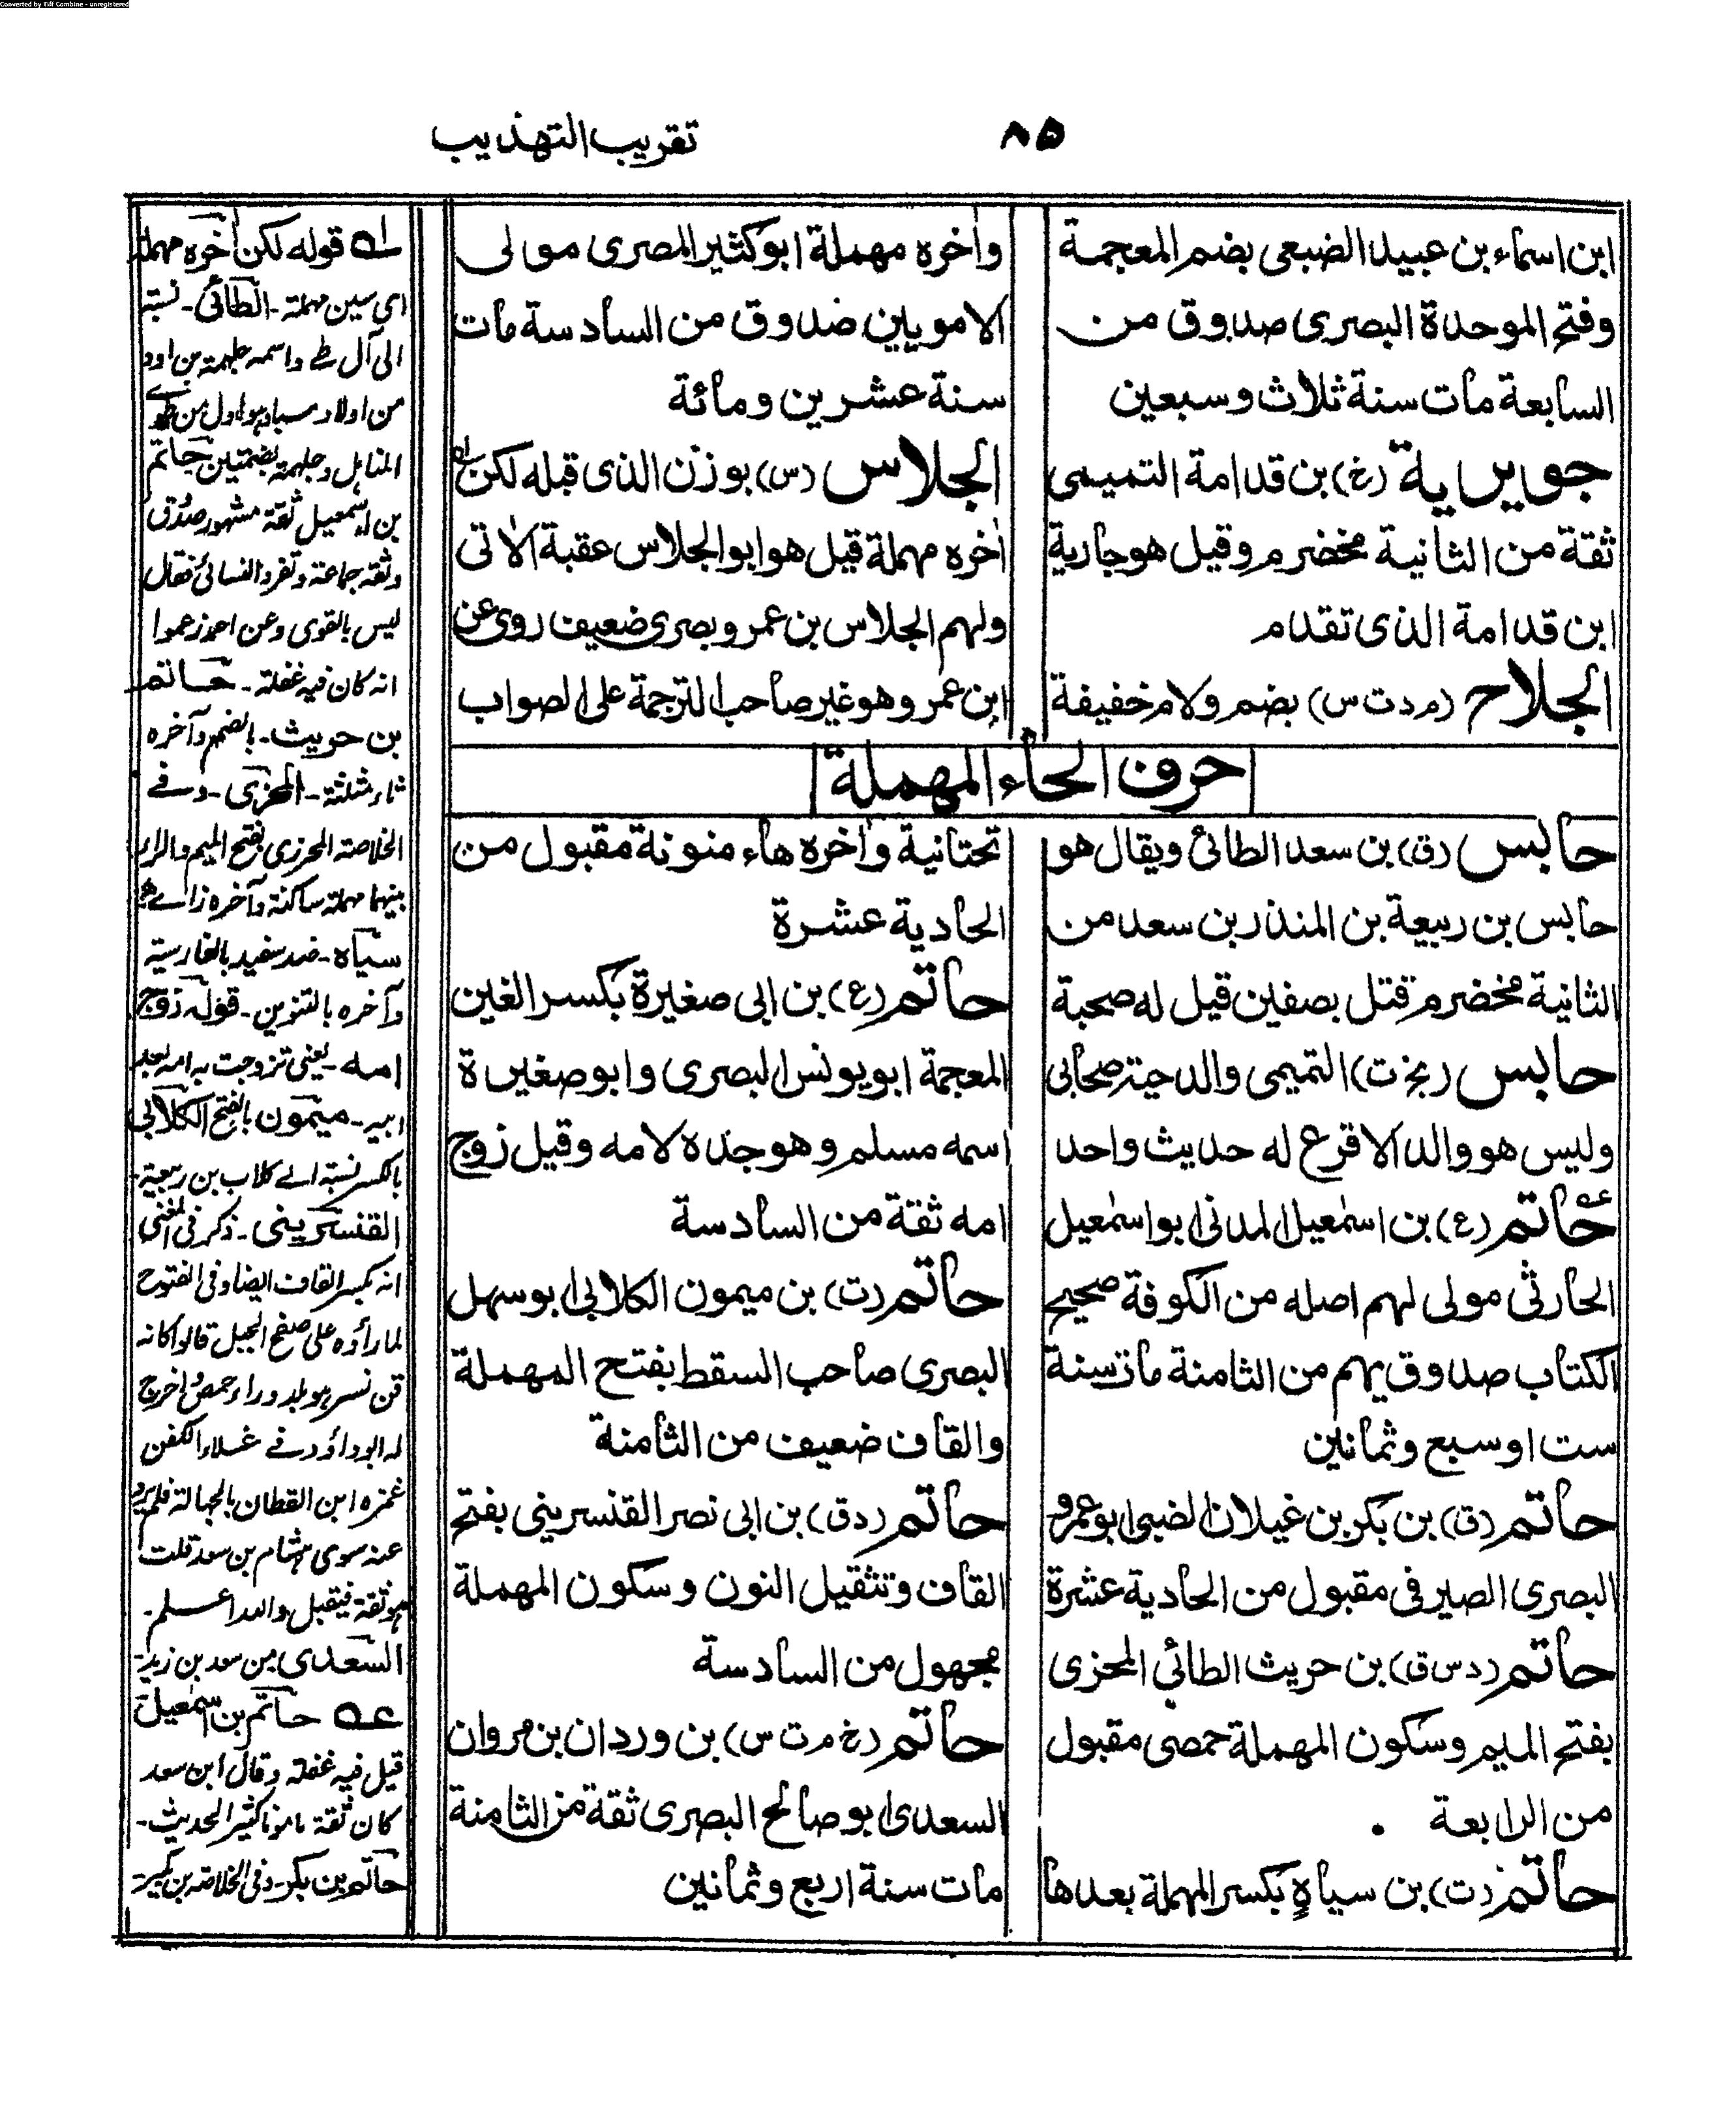 Converted by Tiff Combine - unregistered
٨٥
تقريب التهذيب
ابن اسماء بن عبيد الضبعى بضم المعجمة
وفتح الموحدة البصرى صدوق من
السابعة مات سنة ثلاث وسبعين
جويرية (خ) بن قدامة التميمى
ثقة من الثانية مخضرم وقيل هو جارية
ابن قدامة الذى تقدم
الجلاح (م د ت س) بضم ولام خفيفة
وأخره مهملة ابو كثير المصرى مولى
الامويين صدوق من السادسة مات
سنة عشرين ومائة
الجلاس (س) بوزن الذى قبله لكن
أخره مهملة قيل هو ابو الجلاس عقبة الاتى
ولهم الجلاس بن عمرو بصرى ضعيف روى عن
ابن عمر وهو غير صاحب الترجمة على الصواب
حرف الحاء المهملة
حابس (ق) بن سعد الطائى ويقال هو
حابس بن ربيعة بن المنذر بن سعد من
الثانية مخضرم قتل بصفين قيل له صحبة
حابس (بخ ت) التميمى والد حية صحابى
وليس هو والد الاقرع له حديث واحد
حاتم (ع) بن اسمعيل المدنى ابو اسمعيل
الحارثى مولى لهم اصله من الكوفة صحيح
الكتاب صدوق يهم من الثامنة مات سنة
ست او سبع وثمانين
حاتم (ق) بن بكر بن غيلان الضبى ابو عمرو
البصرى الصيرفى مقبول من الحادية عشرة
حاتم (د س ق) بن حريث الطائى المحزى
بفتح الميم وسكون المهملة حمصى مقبول
من الرابعة
حاتم (ت) بن سياه بكسر المهملة بعدها
تحتانية وأخره هاء منونة مقبول من
الحادية عشرة
حاتم (ع) بن ابى صغيرة بكسر الغين
المعجمة ابو يونس البصرى وابو صغيرة
اسمه مسلم وهو جده لامه وقيل زوج
امه ثقة من السادسة
حاتم (ت) بن ميمون الكلابى ابو سهل
البصرى صاحب السقط بفتح المهملة
والقاف ضعيف من الثامنة
حاتم (دق) بن ابى نصر القنسرينى بفتح
القاف وتثقيل النون وسكون المهملة
مجهول من السادسة
حاتم (خ م ت س) بن وردان بن مروان
السعدى ابو صالح البصرى ثقة من الثامنة
مات سنة اربع وثمانين
له قوله لكن أخره مهملة
اى سين مهملة - الطائى - نسبة
الى آل طے واسمه جلهمة بن ادد
من اولاد سبا وهو اول من طوے
المناهل وجلهمة بضمتين حاتم
بن اسمعيل ثقة مشهور صدوق
وثقه جماعة وتفرد النسائى فقال
ليس بالقوى وعن احمد زعموا
انه كان فيه غفلة - حاتم
بن حريث - بالضم وآخره
ثاء مثلثة - المحزى - وفے
الخلاصة المحرزى بفتح الميم والراء
بينهما مهملة ساكنة وآخره زاے
سياه - ضد سفيد بالفارسية
وآخره بالتنوين - قوله زوج
امه - يعنى تزوجت به امه بعد
ابيه - ميمون بالفتح الكلابى
بالكسر نسبة الے كلاب بن ربيعة -
القنسرينى - ذكر فى المغنى
انه بكسر القاف ايضا وفى الفتوح
لما رأوه على صفح الجبل قالوا كانه
قن نسر هو بلد وراء حمص اخرج
له ابو داؤد فے غلاء الكفن
غمزه ابن القطان بالجهالة فلم يرو
عنه سوى هشام بن سعد قلت
هو ثقة فيقبل والله اعلم -
السعدى من سعد بن زيد -
عه حاتم بن اسمعيل
قيل فيه غفلة وقال ابن سعد
كان ثقة مامونا كثير الحديث -
حاتم بن بكر - وفى الخلاصة بن بكير -